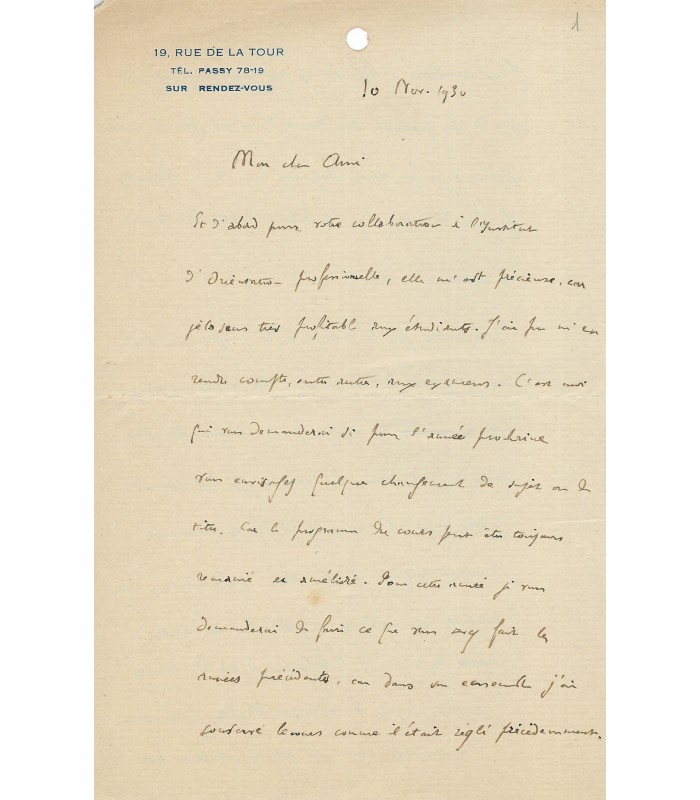 1
19, RUE DE LA TOUR
TÉL. PASSY 78-19
SUR RENDEZ-VOUS
10 Nov. 1930
Mon cher Ami
Et d'abord pour votre collaboration à l'Institut
d'Orientation professionnelle, elle m'est précieuse, car
je la sens très profitable aux étudiants. J'ai pu m'en
rendre compte, entre autre, aux examens. C'est moi
qui vous demanderai si pour l'année prochaine
vous envisagez quelque changement de sujet ou de
titre. Car le programme des cours peut être toujours
remanié et amélioré. Pour cette année je vous
demanderai de faire ce que vous avez fait les
années précédentes, car dans son ensemble j'ai
conservé le cours comme il était réglé précédemment.